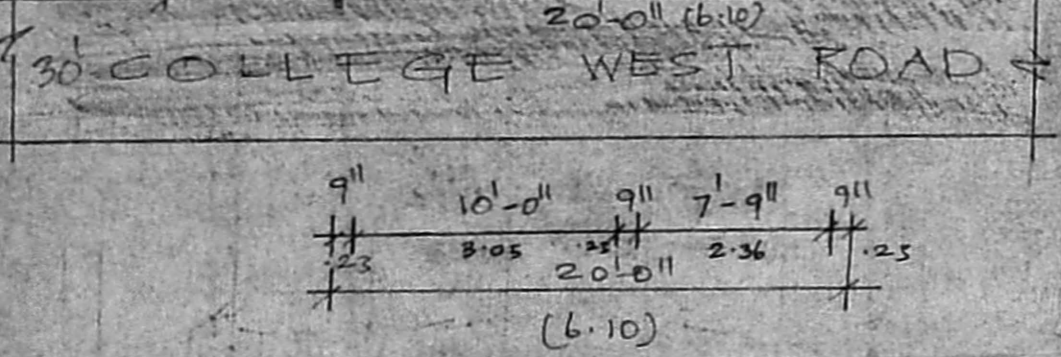 20'-0" (6.10)
30' COLLEGE WEST ROAD
9" 10'-0" 9" 7'-9" 9"
.23 3.05 .23 2.36 .23
20'-0"
(6.10)